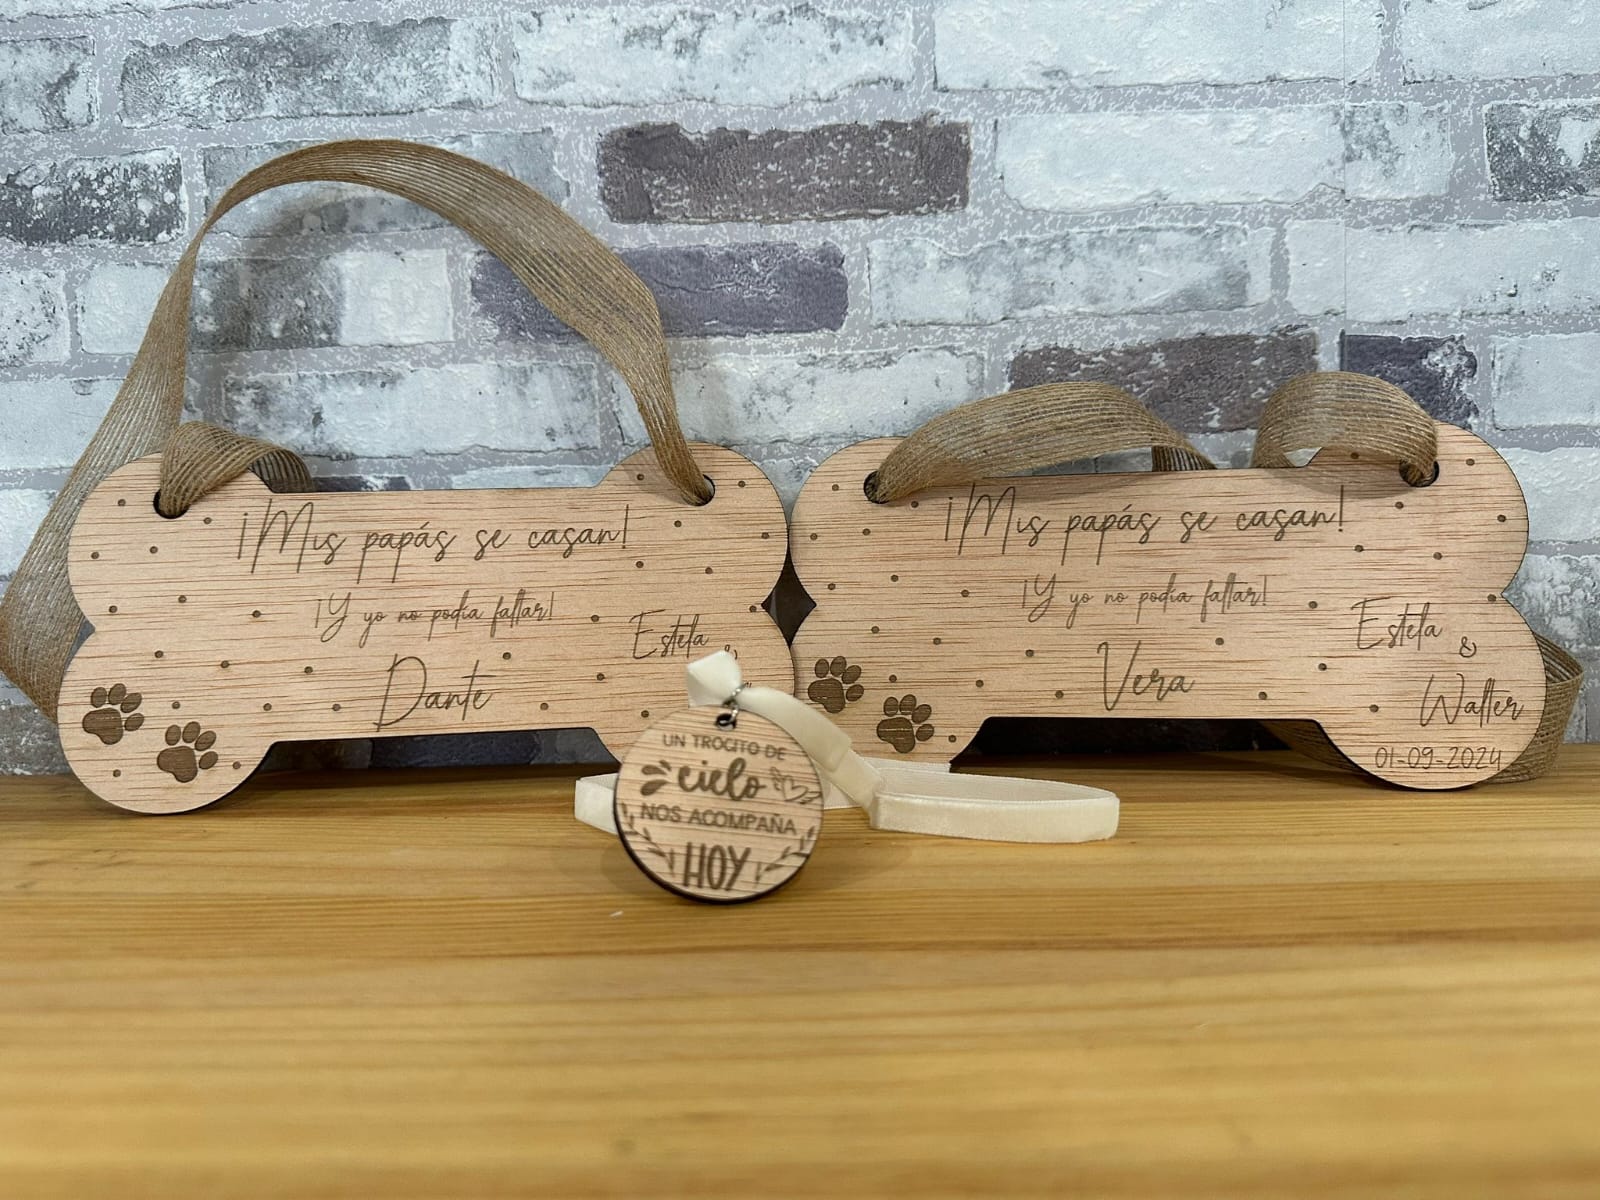 ¡Mis papás se casan!
¡Y yo no podía faltar!
Dante
Estela
&
¡Mis papás se casan!
¡Y yo no podía faltar!
Vera
Estela
&
Walter
01-09-2024
UN TROCITO DE
cielo
NOS ACOMPAÑA
HOY